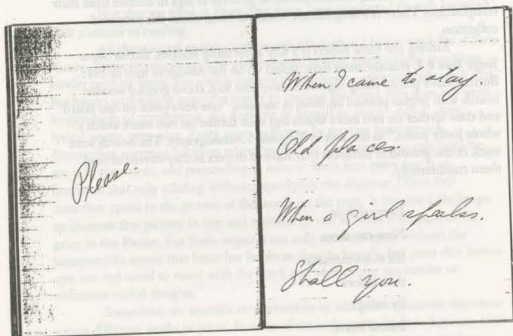 Please.
When I came to stay.
Old places.
When a girl speaks.
Shall you.